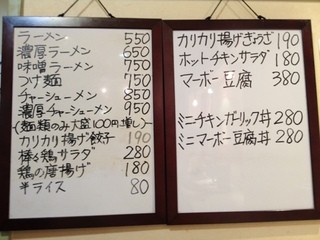 ラーメン 550
濃厚ラーメン 650
味噌ラーメン 750
つけ麺 750
チャーシューメン 850
濃厚チャーシューメン 950
(麺類のみ大盛100円増し)
カリカリ揚げ餃子 190
棒々鶏サラダ 280
鶏の唐揚げ 180
半ライス 80
カリカリ揚げぎょうざ 190
ホットチキンサラダ 180
マーボー豆腐 380
ミニチキンガーリック丼 280
ミニマーボー豆腐丼 280